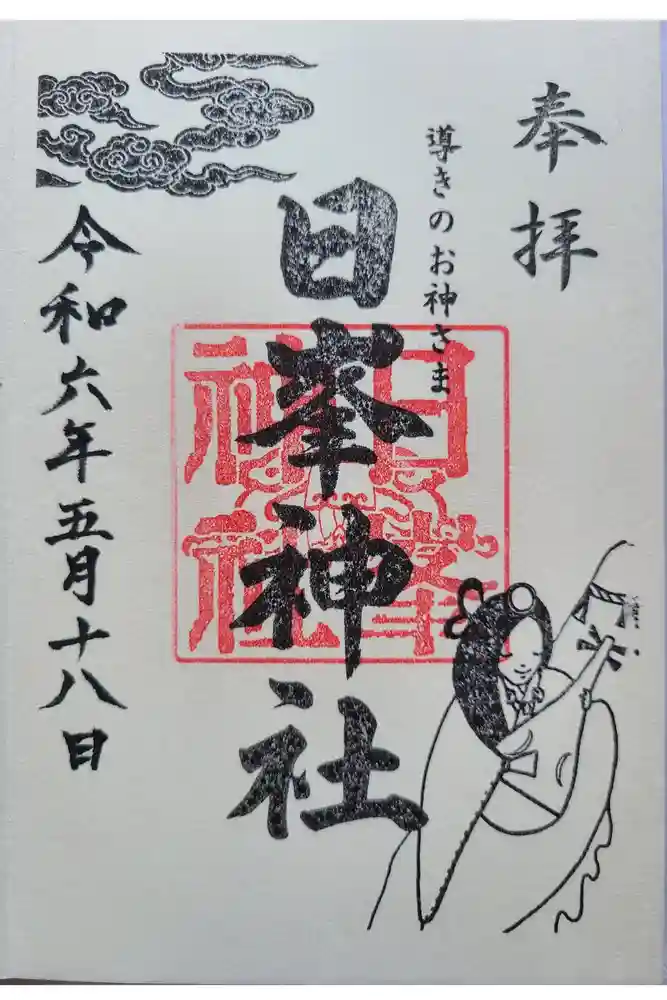 奉拝
導きのお神さま
日峯神社
日峯
神社
令和六年五月十八日